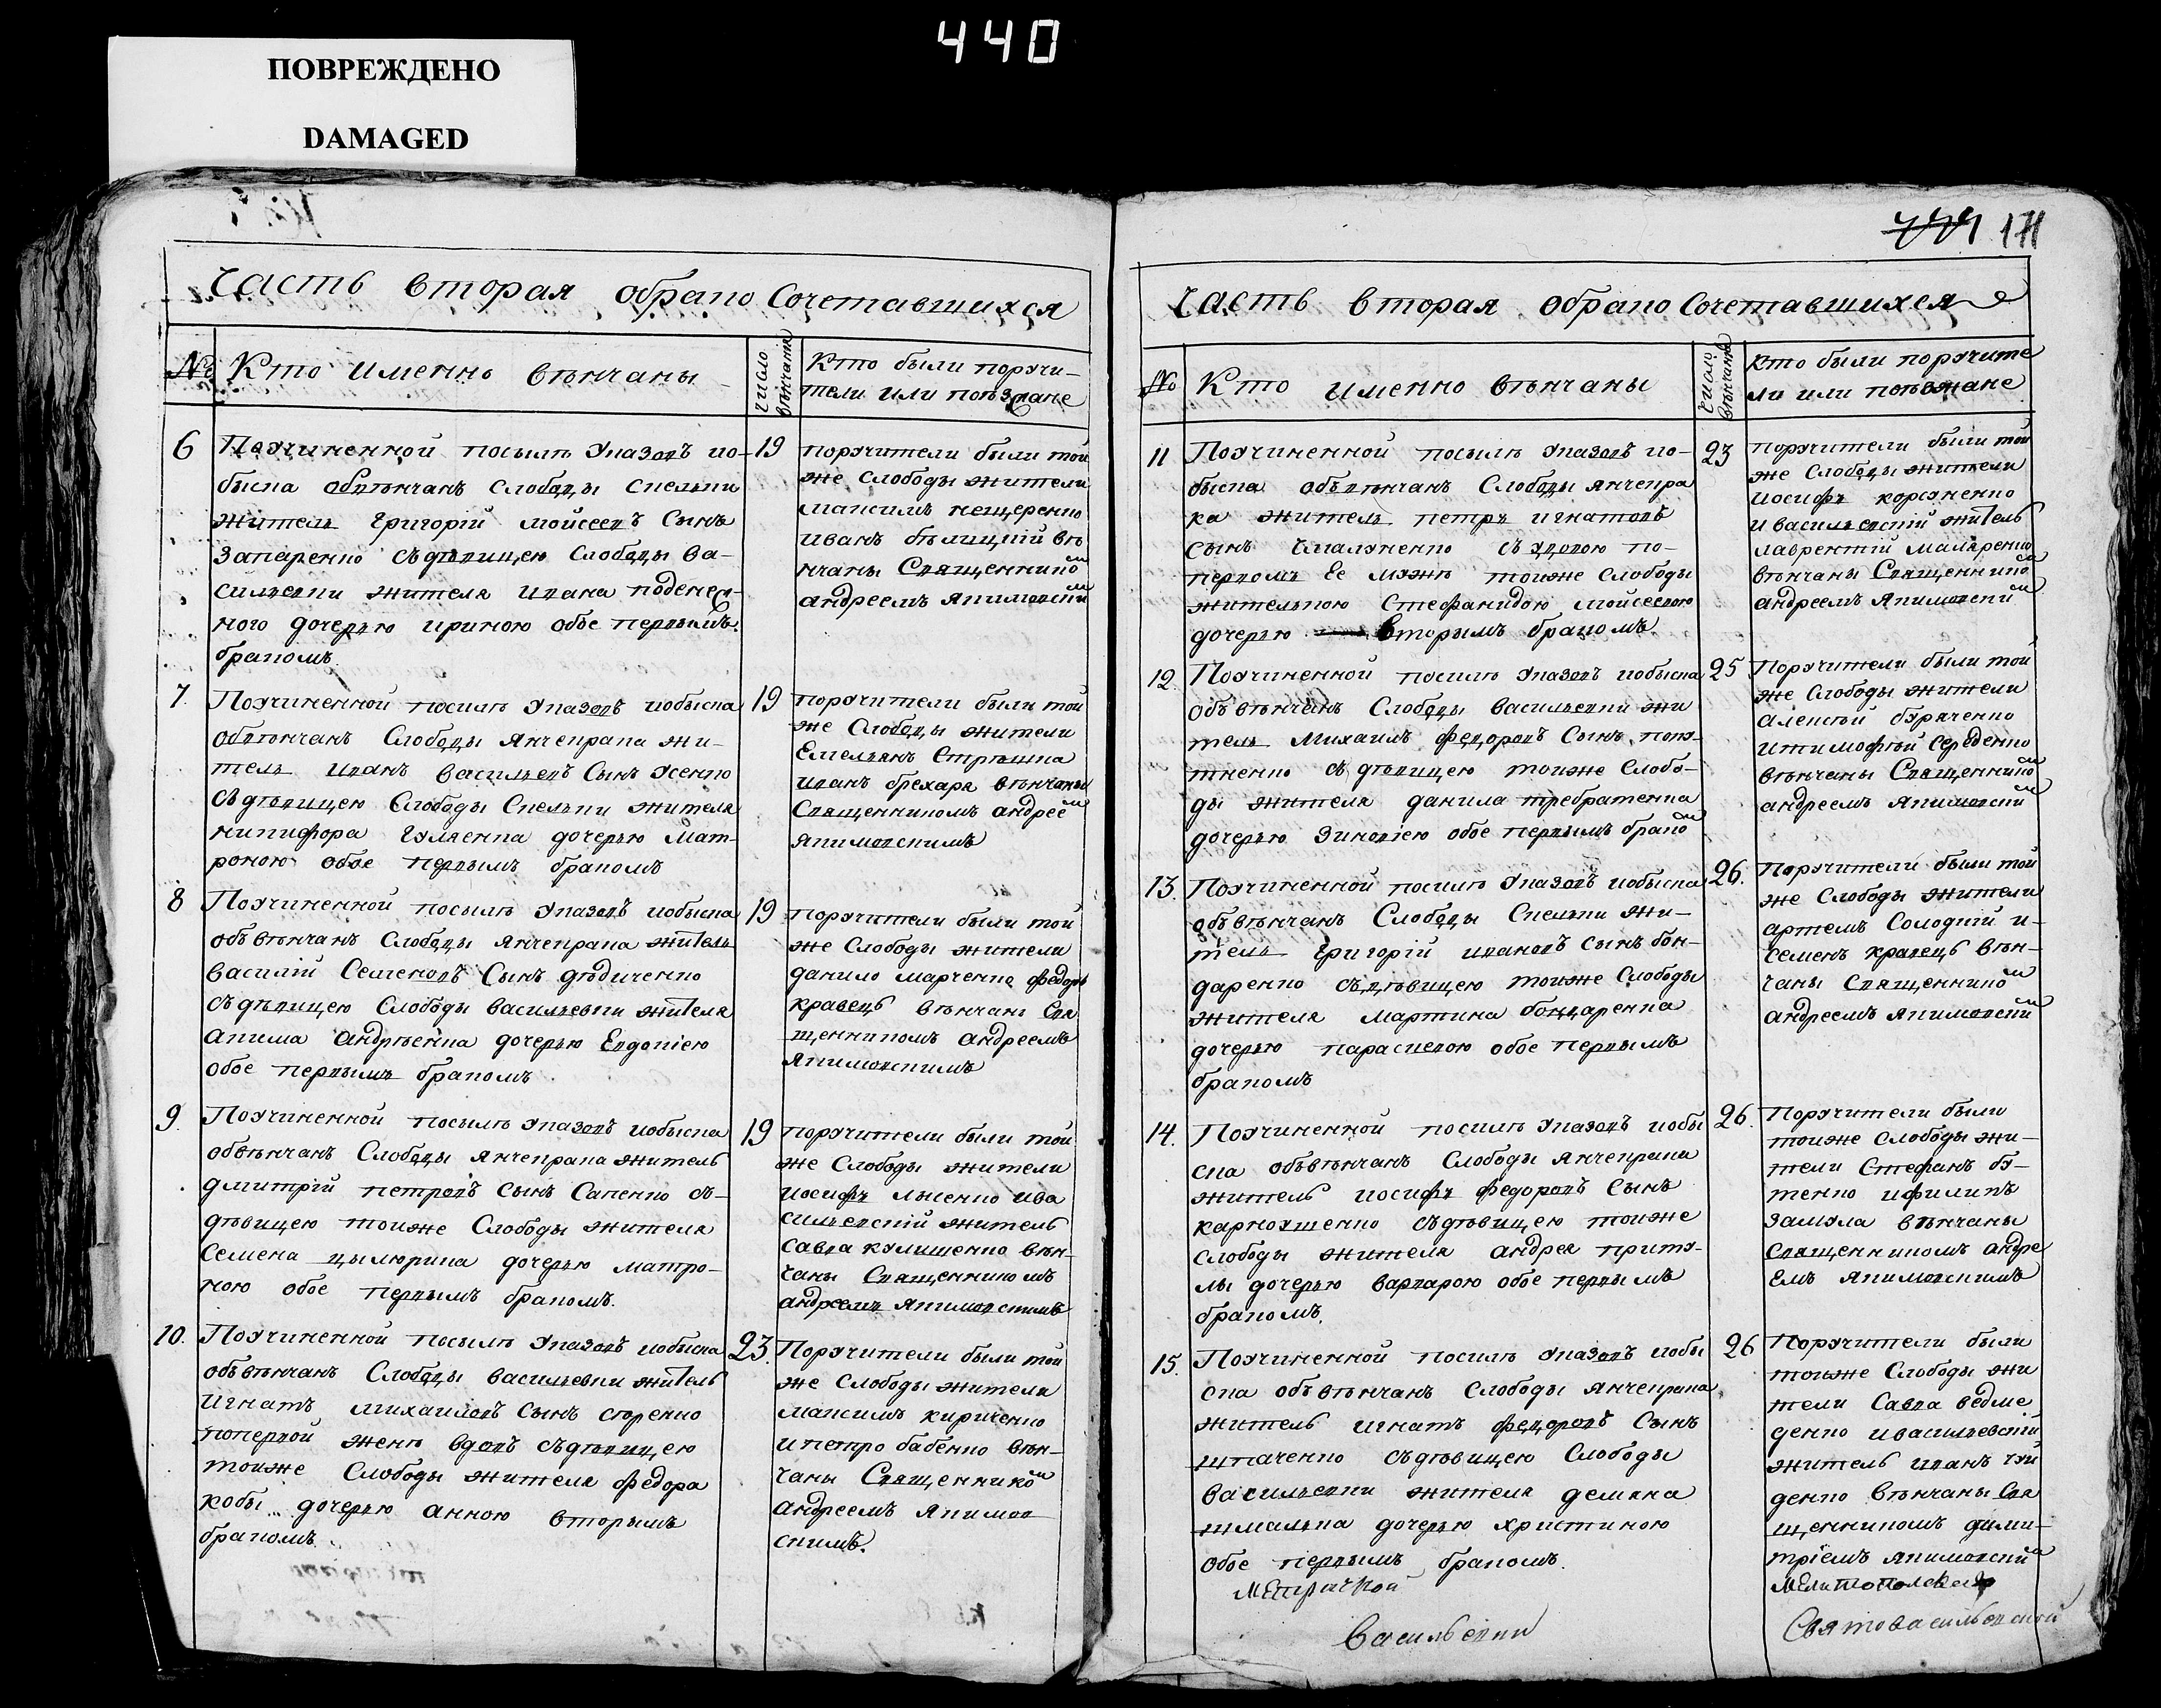 440
ПОВРЕЖДЕНО
DAMAGED
171
Часть вторая обрако Сочетавшихся
№
Кто именно вѣнчаны
число вѣнчания
Кто были поручи-
тели или поѣзжане
6
Поучиненной посилѣ Указовъ ио-
быска обвѣнчанъ Слободы Спелки
житель Григорій мойсеевъ Сынъ
Запаренко съдѣвицею Слободы Ва-
сильевки жителя ивана
ного дочерью ириною обое первымъ
бракомъ.
19
поручители были той
же Слободы жители
максимъ нещеренко
иванъ бѣлицкій вѣ
нчаны Священнико м
андреемъ Якимовски м
7.
Поучиненной посилѣ Указовъ иобыска
обвѣнчанъ Слободы Янчекрака жи-
тель иванъ васильевъ Сынъ усенко
съдѣвицею Слободы Спелки жителя
никифора гуляенка дочерью Мат-
роною обое первымъ бракомъ
19
поручители были той
же Слободы жители
Емельянъ Стрѣшка
иванъ брехаря вѣнчаны
Священникомъ андрее м
якимовскимъ
8
Поучиненной посилѣ Указовъ иобыска
объвѣнчанъ Слободы Янчекрака житель
василій Семеновъ Сынъ дѣдиченко
съдѣвицею Слободы васильевки жителя
акима андрѣенка дочерью Евдокіею
обое первымъ бракомъ.
19
поручители были той
же Слободы жители
данило марченко федоръ
кравецъ вѣнчани Свя
щенникомъ андреемъ
Якимовскимъ
9.
Поучиненной посилѣ Указовъ иобыска
обвѣнчанъ Слободы Янчекрака житель
дмитрій петровъ Сынъ Сапенко съ-
дѣвицею тойже Слободы жителя
Семена цылюрика дочерью матро-
ною обое первымъ бракомъ.
19
поручители были той
же Слободы жители
иосифъ лысенко ива
сильевскій житель
Савва кулишенко вѣн-
чаны Священникомъ
андреемъ Якимовскимъ
10.
Поучиненной посилѣ Указовъ иобыска
объвѣнчанъ Слободы васильевки житель
Игнатъ михаиловъ Сынъ
поперво́й женѣ вдовъ съдѣвицею
тойже Слободы жителя федора
кобы дочерью анною вторымъ
бракомъ.
23.
Поручители были той
же Слободы жители
максимъ кириченко
ипетро бабенко вѣн-
чаны Священнико м
андреемъ Якимов
скимъ.
Часть вторая обрако Сочетавшихся
№
Кто именно вѣнчаны
число вѣнчания
Кто были поручите
ли или поѣзжане
11
Поучиненной посилѣ Указовъ ио-
быска объвѣнчанъ Слободы янчекра
ка житель петръ игнатовъ
сынъ съ вдовою по-
первомъ Ее мужѣ тойже Слободы
жителькою Стефанидою мойсеевою
дочерью вторымъ бракомъ.
23
поручители были той
же Слободы жители
иосифъ корсуненко
и васильевскій житель
лаврентій маляренко
вѣнчаны Священнико м
андреемъ Якимовски м
12.
Поучиненной посилѣ Указовъ иобыска
объвѣнчанъ Слободы васильевки жи
тель Михаилъ федоровъ Сынъ
тненко съ дѣвицею тойже Слобо-
ды жителя данила требратенка
дочерью Зиновіею обое первымъ брако м
25
Поручители были той
же Слободы жители
алексѣй бураченко
итимофѣй Середенко
вѣнчаны Священнико м
андреемъ Якимовски м
13.
Поучиненной посилѣ Указовъ иобыска
объвѣнчанъ Слободы Спелки жи-
тель Григорій ивановъ сынъ бон-
даренко съдѣвицею тойже Слободы
жителя Мартина бондаренка
дочерью параскевою обое первымъ
бракомъ
26.
Поручители были той
же Слободы жители
артемъ Солодкій и-
семенъ кравецъ вѣн-
чаны Священнико м
андреемъ Якимовски м
14.
Поучиненной посилѣ Указовъ иобы
ска объвѣнчанъ Слободы Янчекрака
житель иосифъ федоровъ Сынъ
карноушенко съдѣвицею тойже
слободы жителя андрея приту-
лы дочерью варварою обое первымъ
бракомъ.
26.
Поручители были
тойже Слободы жи-
тели Стефанъ бу-
тенко ифилипъ
замула вѣнчаны
священникомъ андре
Емъ Якимовскимъ
15.
Поучиненной посилѣ Указовъ иобы
ска объвѣнчанъ Слободы Янчекрака
житель игнатъ федоровъ Сынъ
шпаченко съдѣвицею Слободы
Васильевки жителя демяна
шмалька дочерью христиною
обое первымъ бракомъ.
26
Поручители были
тойже Слободы жи
тели Савва ведме
денко ивасильевскій
житель иванъ чуй
денко вѣнчаны Свя
щенникомъ дими-
тріемъ якимовски м
Метрачкой
Мелитополского
Васильевки
Святовасильевской